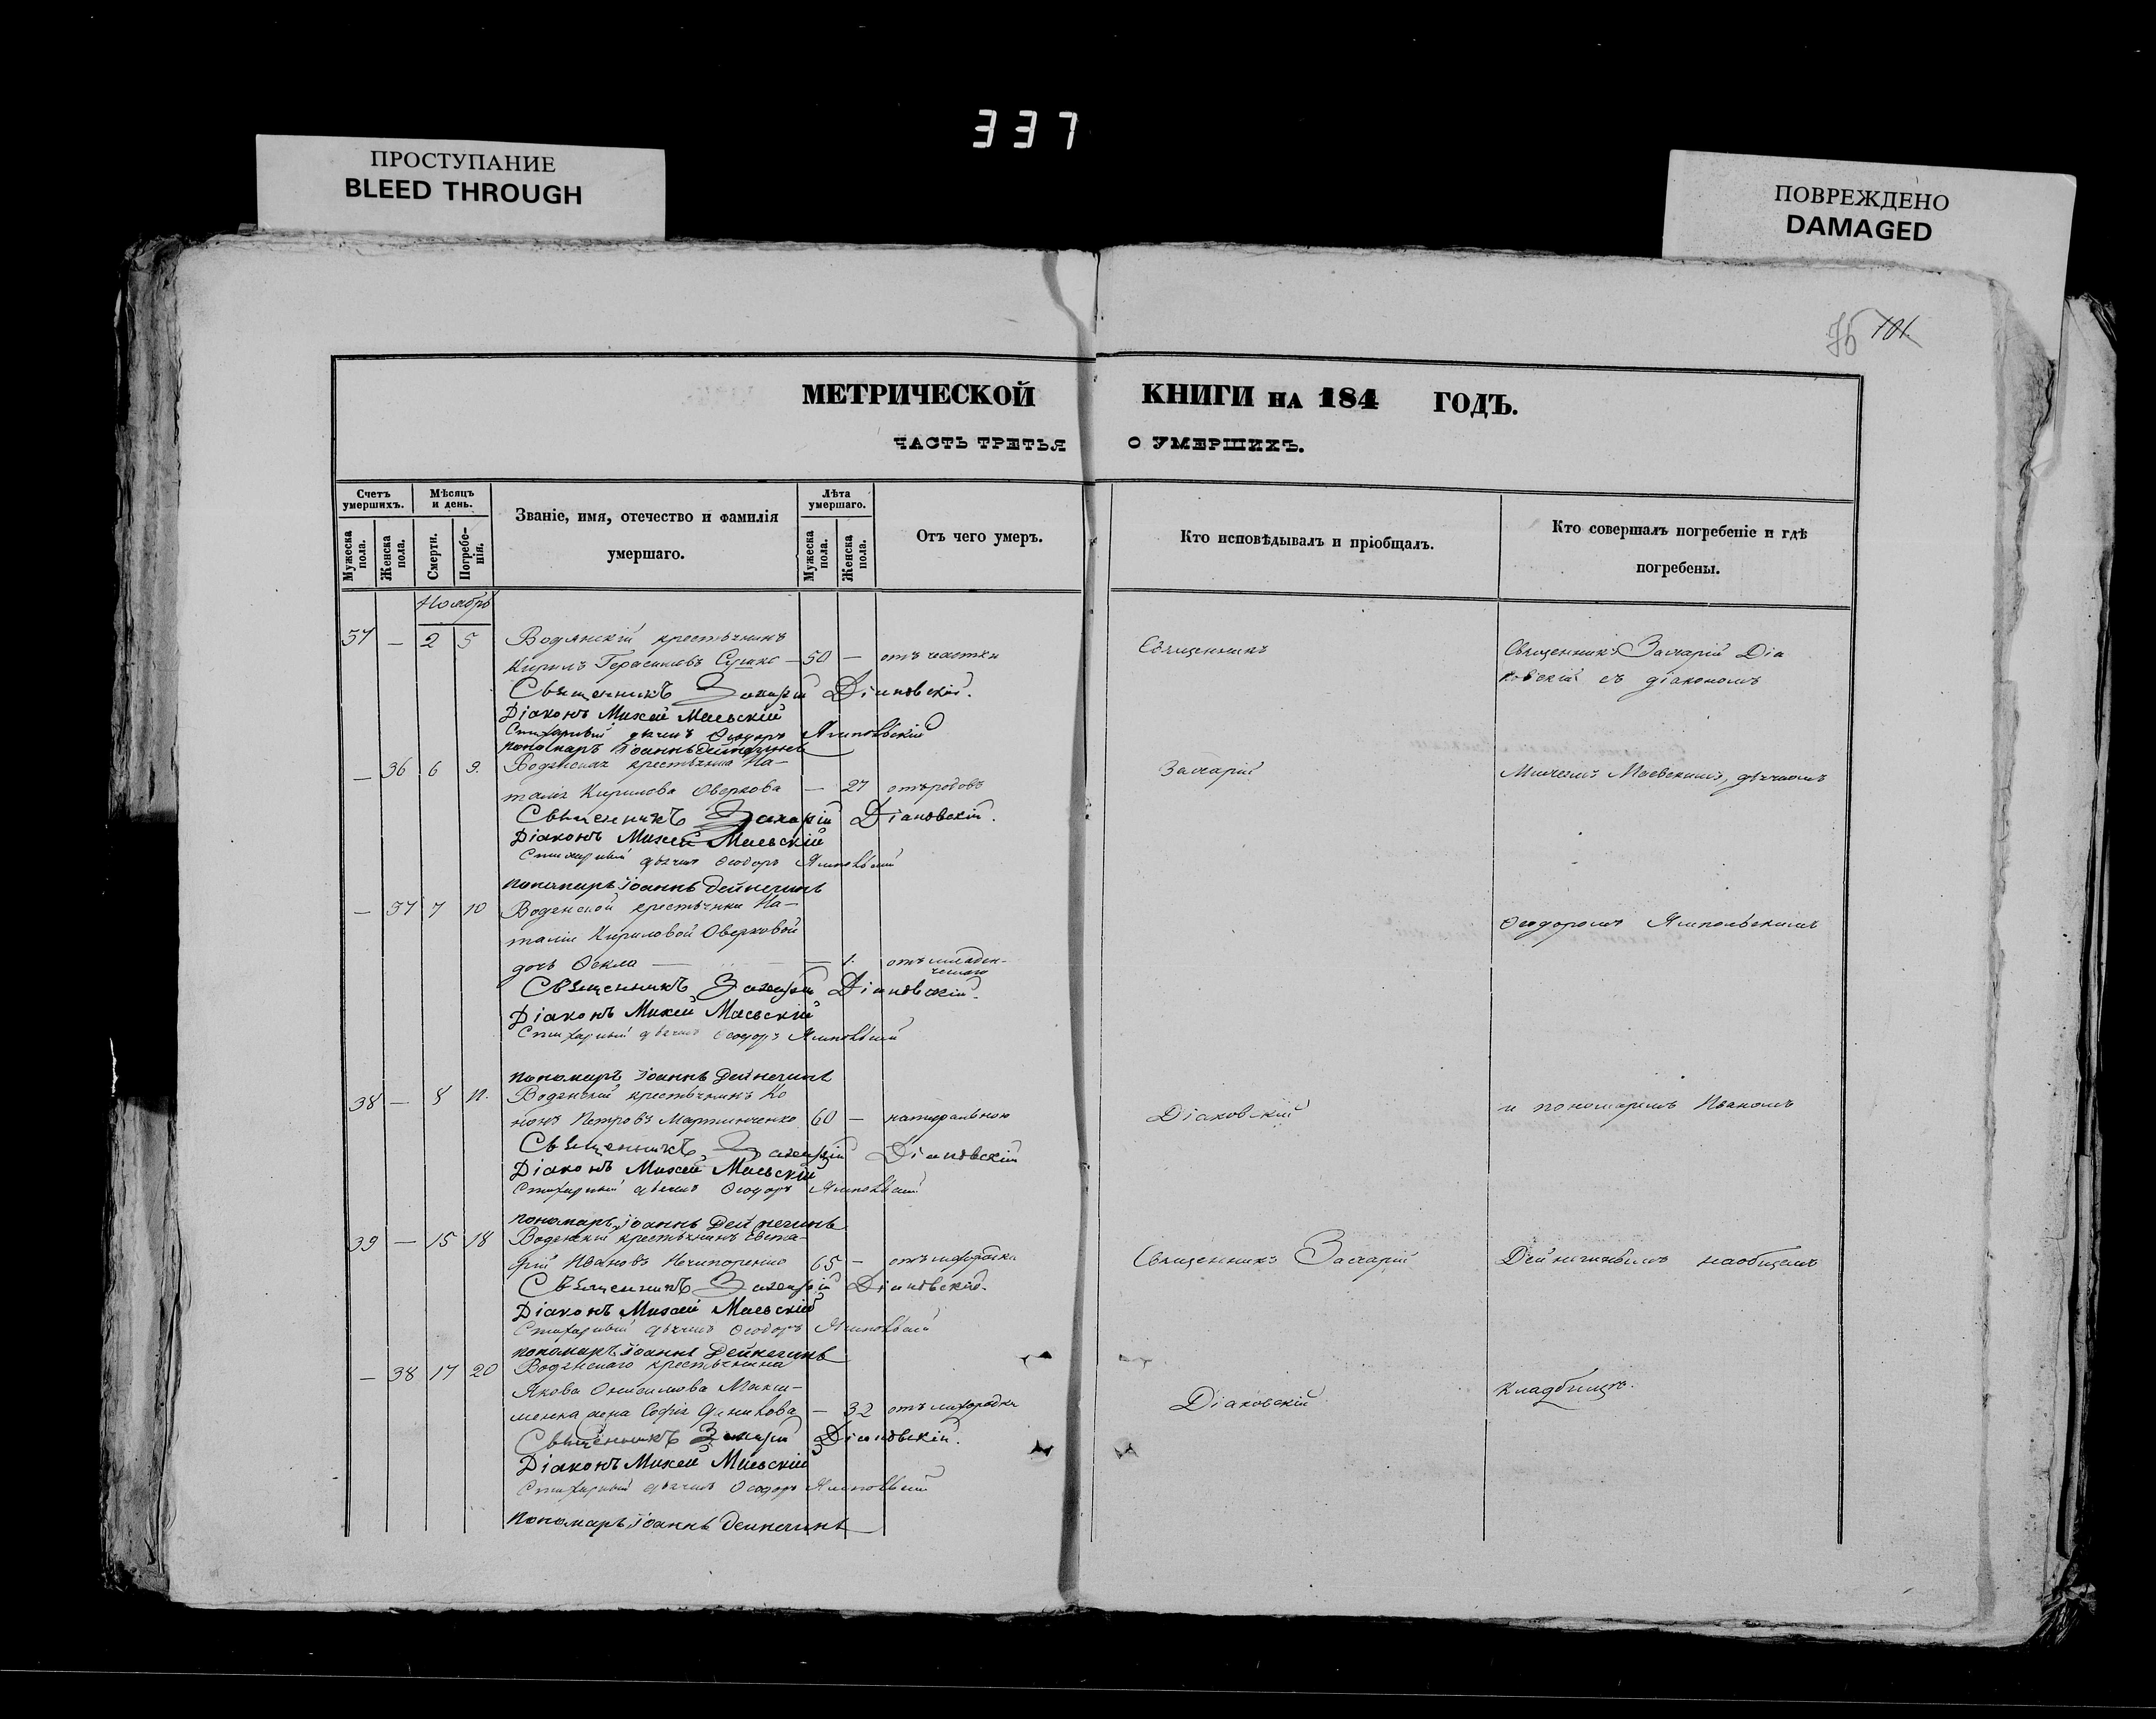 337
ПРОСТУПАНИЕ
BLEED THROUGH
ПОВРЕЖДЕНО
DAMAGED
76 101
МЕТРИЧЕСКОЙ КНИГИ НА 184 ГОДЪ.
ЧАСТЬ ТРЕТЬЯ О УМЕРШИХЪ.
Счетъ умершихъ.
Мужеска пола.
Женска пола.
Мѣсяцъ и день.
Смерти.
Погребенія.
Званіе, имя, отечество и фамилія
умершаго.
Лѣта умершаго.
Мужеска пола.
Женска пола.
Отъ чего умеръ.
Кто исповѣдывалъ и пріобщалъ.
Кто совершалъ погребеніе и гдѣ
погребены.
Ноябрь
37 — 2 5 Водянскій крестьянинъ
Кирилъ Герасимовъ — 50 —
Священникъ Захарій Діаковскій.
Діаконъ Михей Маевскій
Стихарный дьячекъ Ѳеодоръ Ямпольскій
пономарь Іоаннъ
Священникъ
Священникъ Захарій Діа
ковскій съ діакономъ
— 36 6 9. Водянская крестьянка На—
талія Кирилова Оверкова — 27 отъ родовъ
Священникъ Захарій Діаковскій.
Діаконъ Михей Маевскій
Стихарный дьячекъ Ѳеодоръ Ямпольскій
пономарь Іоаннъ
Захарій
Михеемъ Маевскимъ, дьячкомъ
— 37 7 10 Водянской крестьянки На—
таліи Кириловой Оверковой
дочь Ѳекла — — 1. отъ младен-
ческаго
Священникъ Захарій Діаковскій.
Діаконъ Михей Маевскій
Стихарный дьячекъ Ѳеодоръ Ямпольскій
пономарь Іоаннъ
Ѳеодоромъ Ямпольскимъ
38 — 8 11. Водянскій крестьянинъ Ко
нонъ Петровъ Мартинченко 60 — натуральною
Священникъ Захарій Діаковскій
Діаконъ Михей Маевскій
Стихарный дьячекъ Ѳеодоръ Ямпольскій
пономарь Іоаннъ
Діаковскій
и пономаремъ Иваномъ
39 — 15 18 Водянскій крестьянинъ Евста-
фій Ивановъ Нечипоренко 65 — отъ лихорадки
Священникъ Захарій Діаковскій.
Діаконъ Михей Маевскій
Стихарный дьячекъ Ѳеодоръ Ямпольскій
пономарь Іоаннъ
Священникъ Захарій
наобщемъ
— 38 17 20 Водянскаго крестьянина
Якова Онисимова Макси—
менка жена Софія — 32 отъ лихорадки
Священникъ Захарій Діаковскій.
Діаконъ Михей Маевскій
Стихарный дьячекъ Ѳеодоръ Ямпольскій
пономарь Іоаннъ
Діаковскій
кладбищѣ.